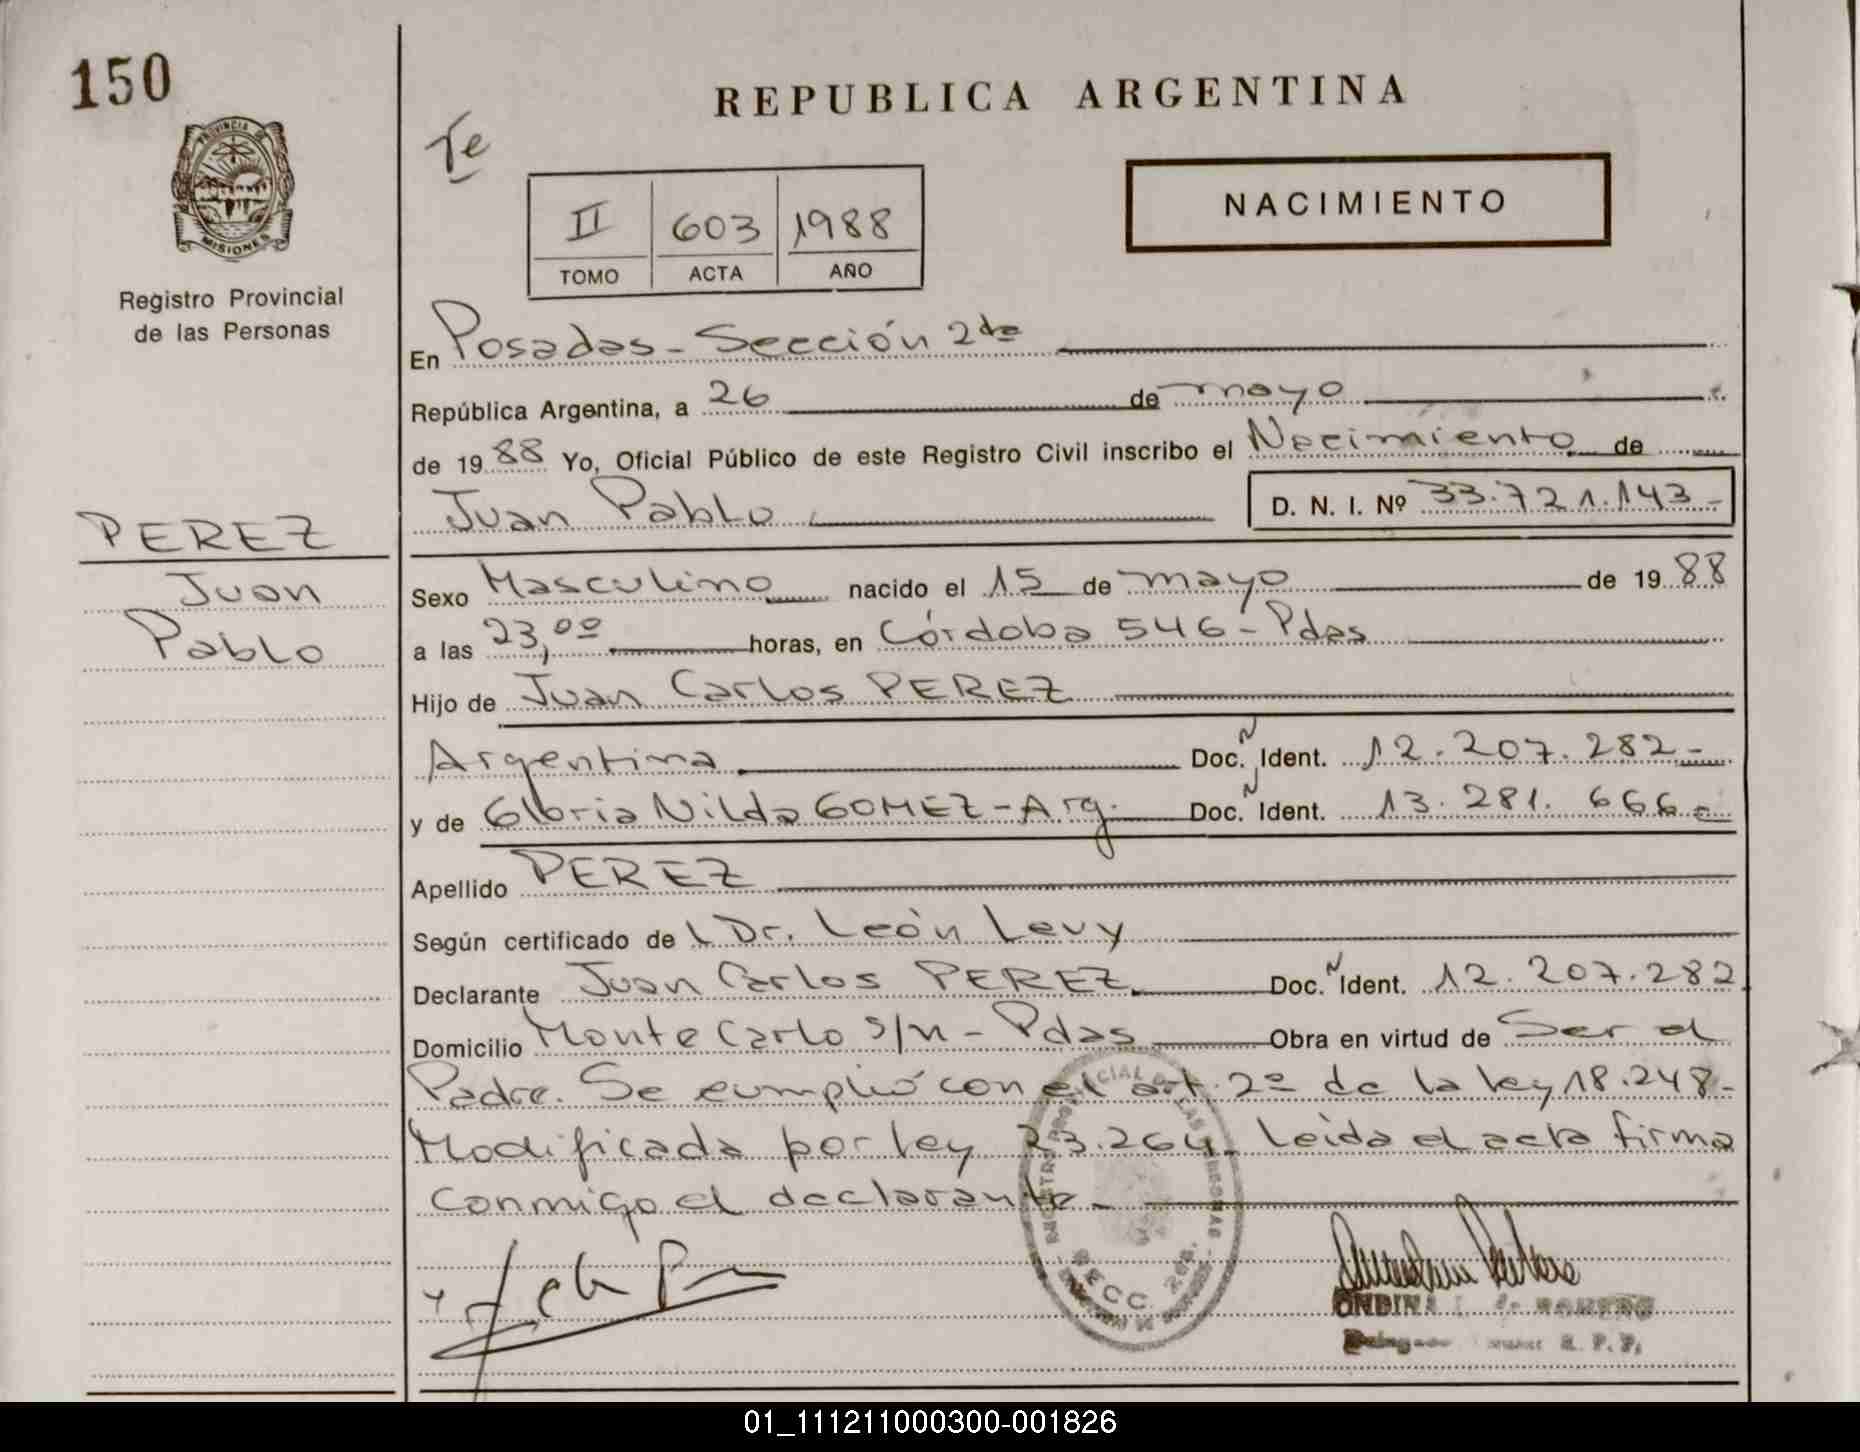 150
REPUBLICA ARGENTINA
Te
PROVINCIA DE
MISIONES
NACIMIENTO
II 603 1988
TOMO ACTA AÑO
Registro Provincial
de las Personas
En Posadas - Sección 2da
República Argentina, a 26 de mayo
de 1988 Yo, Oficial Público de este Registro Civil inscribo el Nacimiento de
Juan Pablo D. N. I. Nº 33.721.143-
PEREZ
Juan
Pablo
Sexo Masculino nacido el 15 de mayo de 1988
a las 23,00 horas, en Córdoba 546 - Pdas
Hijo de Juan Carlos PEREZ
Argentina Doc. N Ident. 12.207.282-
y de Gloria Nilda GOMEZ - Arg. Doc. N Ident. 13.281.666-
Apellido PEREZ
Según certificado de Dr. León Levy
Declarante Juan Carlos PEREZ Doc. N Ident. 12.207.282
Domicilio Monte Carlo s/n - Pdas Obra en virtud de Ser el
Padre. Se cumplió con el art. 2º de la ley 18.248-
Modificada por ley 23.264. Leida el acta firma
conmigo el declarante.-
SECC. 2da.
R. P. P.
01_111211000300-001826